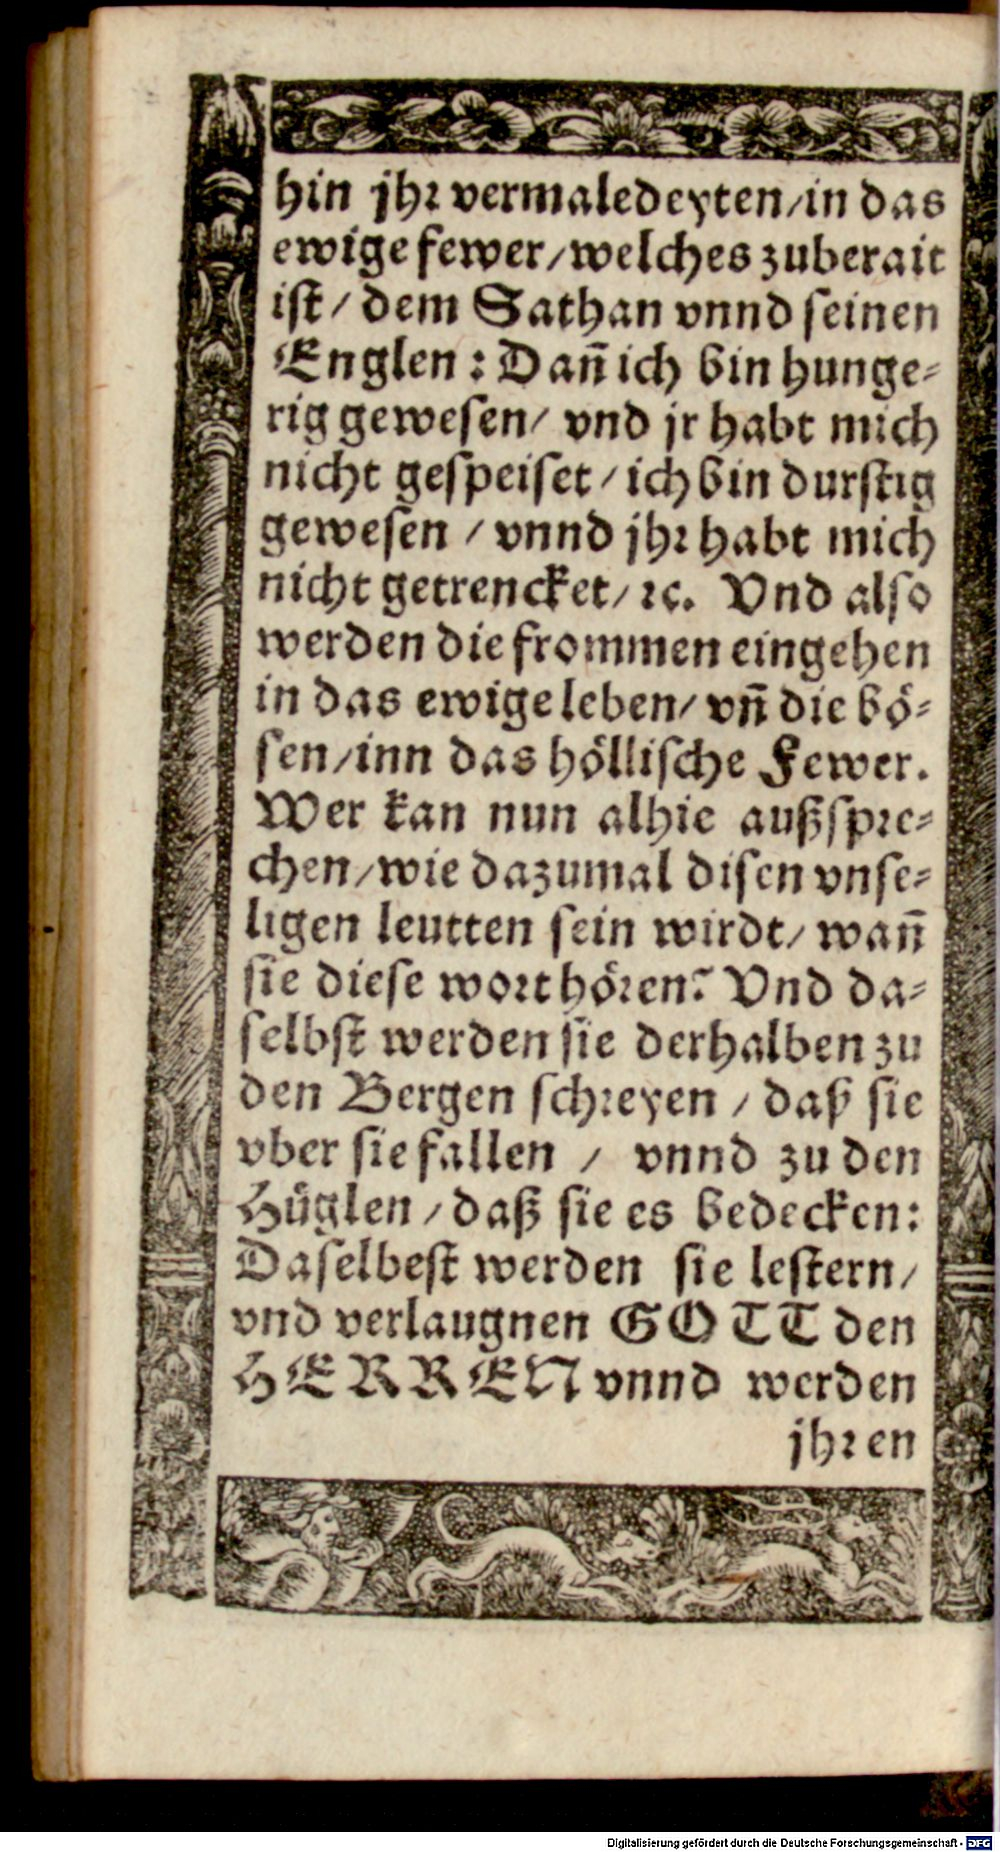 hin jhr vermaledeyten/in das
ewige fewer/welches zuberait
ist/ dem Sathan vnnd seinen
Englen: Dañ ich bin hunge-
rig gewesen/ vnd jr habt mich
nicht gespeiset/ich bin durstig
gewesen / vnnd jhr habt mich
nicht getrencket/ꝛc. Vnd also
werden die frommen eingehen
in das ewige leben/ vñ die bö-
sen/inn das höllische Fewer.
Wer kan nun alhie außspre-
chen/wie dazumal disen vnse-
ligen leutten sein wirdt/ wañ
sie diese wort hören? Vnd da-
selbst werden sie derhalben zu
den Bergen schreyen / daß sie
vber sie fallen / vnnd zu den
Hüglen/daß sie es bedecken:
Daselbest werden sie lestern/
vnd verlaugnen GOTT den
HERREN vnnd werden
jhren
Digitalisierung gefördert durch die Deutsche Forschungsgemeinschaft - DFG